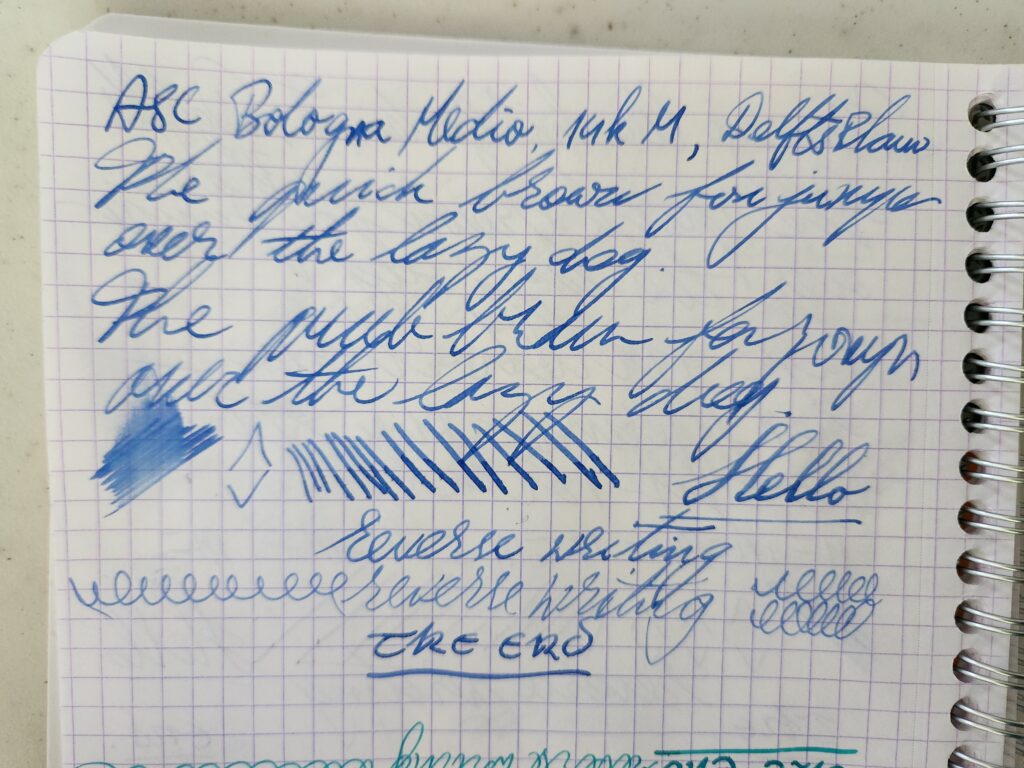 ASC Bologna Medio, 14k M, Delfts Blauw
The quick brown fox jumps
over the lazy dog.
The quick brown fox jumps
over the lazy dog.
Hello
reverse writing
reverse writing
THE END
reverse writing